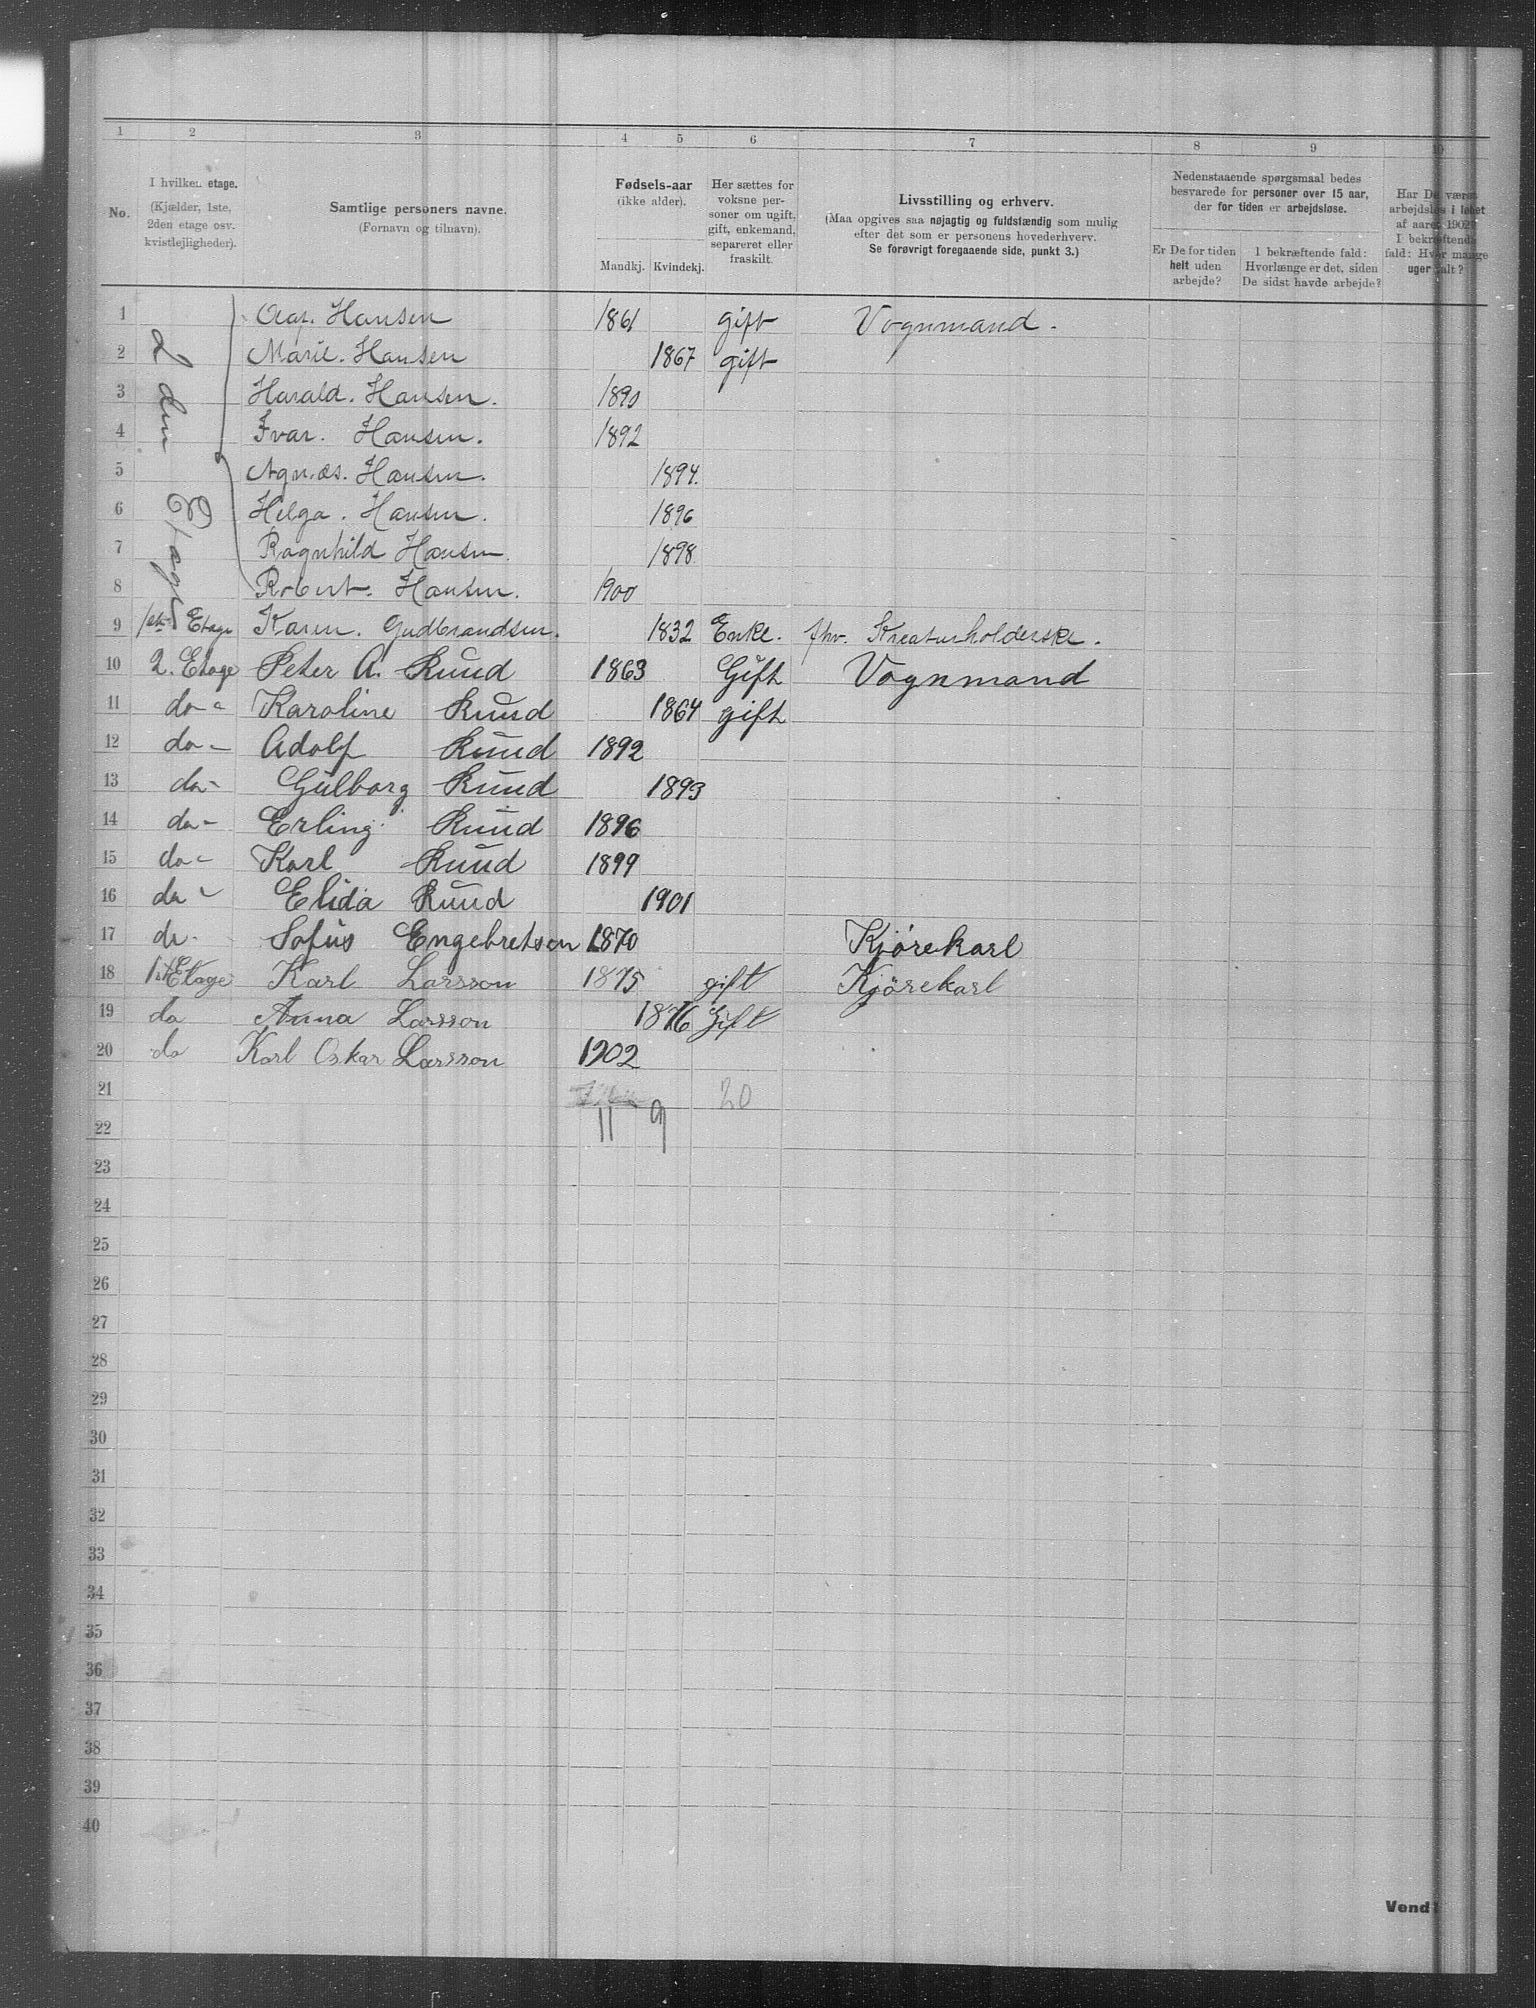 1 2 3 4 5 6 7 8 9 10
No.
I hvilken etage.
(Kjælder, 1ste,
2den etage osv.
kvistlejligheder).
Samtlige personers navne.
(Fornavn og tilnavn).
Fødsels-aar
(ikke alder).
Mandkj. Kvindekj.
Her sættes for
voksne per-
soner om ugift,
gift, enkemand,
separeret eller
fraskilt.
Livsstilling og erhverv.
(Maa opgives saa nøjagtig og fuldstændig som mulig
efter det som er personens hovederhverv.
Se forøvrigt foregaaende side, punkt 3.)
Nedenstaaende spørgsmaal bedes
besvarede for personer over 15 aar,
der for tiden er arbejdsløse.
Er De for tiden
helt uden
arbejde?
I bekræftende fald:
Hvorlænge er det, siden
De sidst havde arbejde?
Har De været
arbejdsløs i løbet
af aaret 1902?
I bekræftende
fald: Hvor mange
uger ialt?
2den Etage
1 Hansen 1861 gift Vognmand.
2 Marie. Hansen 1867 gift
3 Harald. Hansen. 1890
4 Ivar. Hansen. 1892
5 Agnæs. Hansen. 1894.
6 Helga. Hansen. 1896
7 Ragnhild Hansen. 1898.
8 Robert. Hansen. 1900
9 1ste Etage Karen. Gudbrandsen. 1832 Enke. fhv. Kreaturholderske.
10 2. Etage Peter A. Ruud 1863 Gift Vognmand
11 do - Karoline Ruud 1864 gift
12 do - Adolf Ruud 1892
13 do - Gulborg Ruud 1893
14 do - Erling Ruud 1896
15 do - Karl Ruud 1899
16 do - Elida Ruud 1901
17 do - Sofus Engebretson 1870 Kjørekarl
18 1st Etage Karl Larsson 1875 gift Kjørekarl
19 do Anna Larsson 1876 Gift
20 do Karl Oskar Larsson 1902
21 20
22 11 9
23
24
25
26
27
28
29
30
31
32
33
34
35
36
37
38
39
40
Vend!